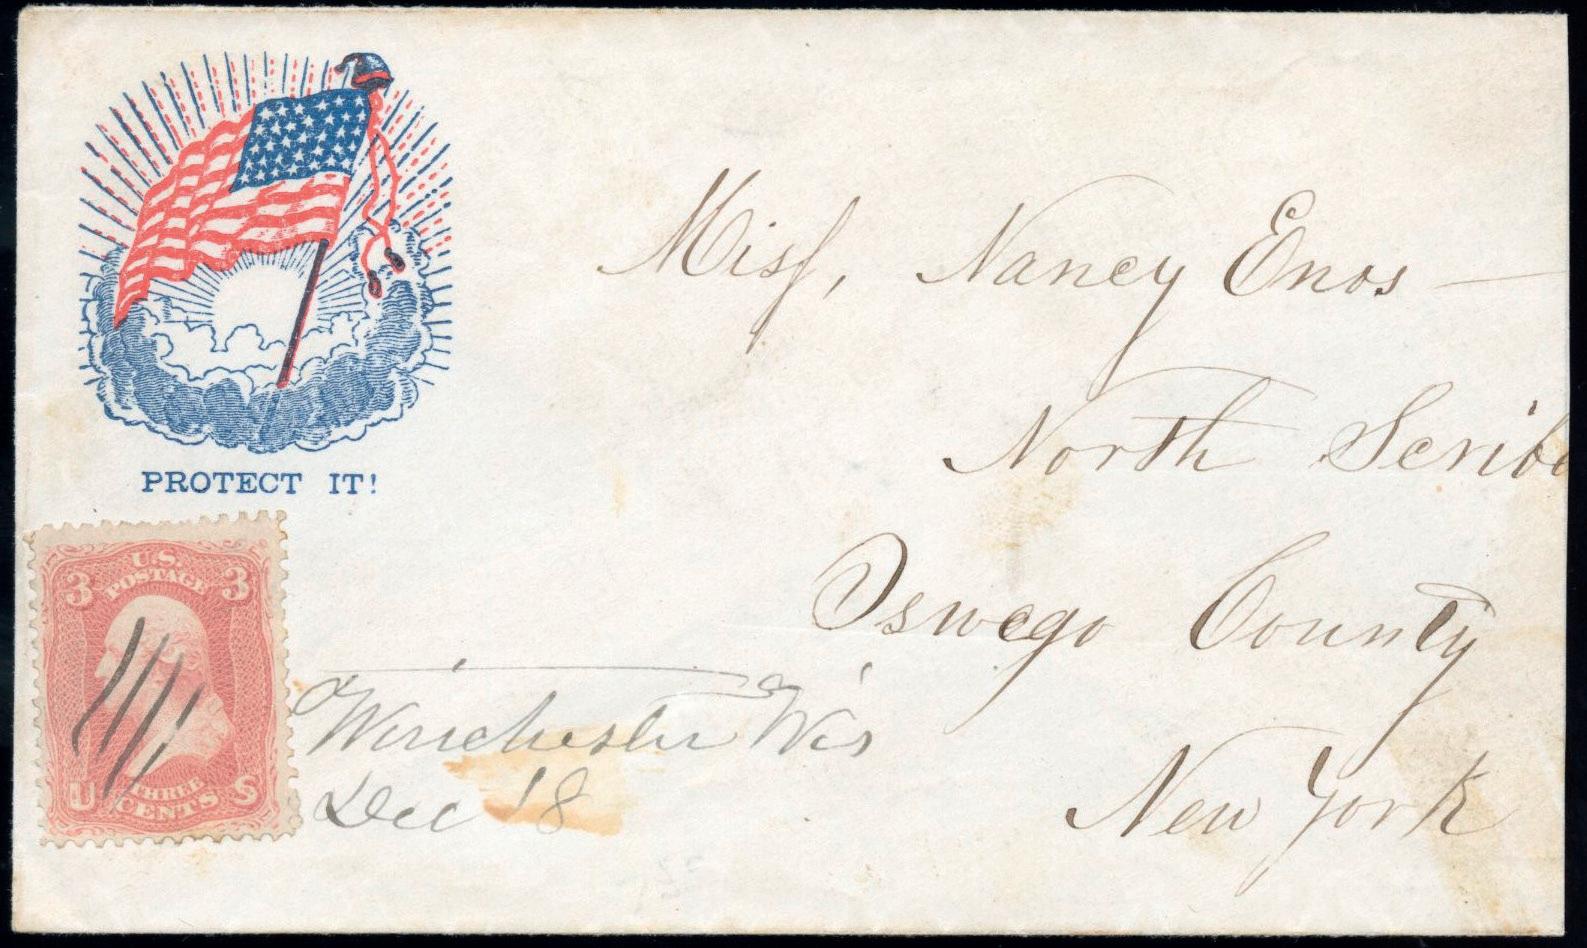 PROTECT IT!
Miss, Nancy Enos
North Scriba
Oswego County
New York
3 U.S. POSTAGE 3
U THREE CENTS S
Winchester Wis
Dec 18